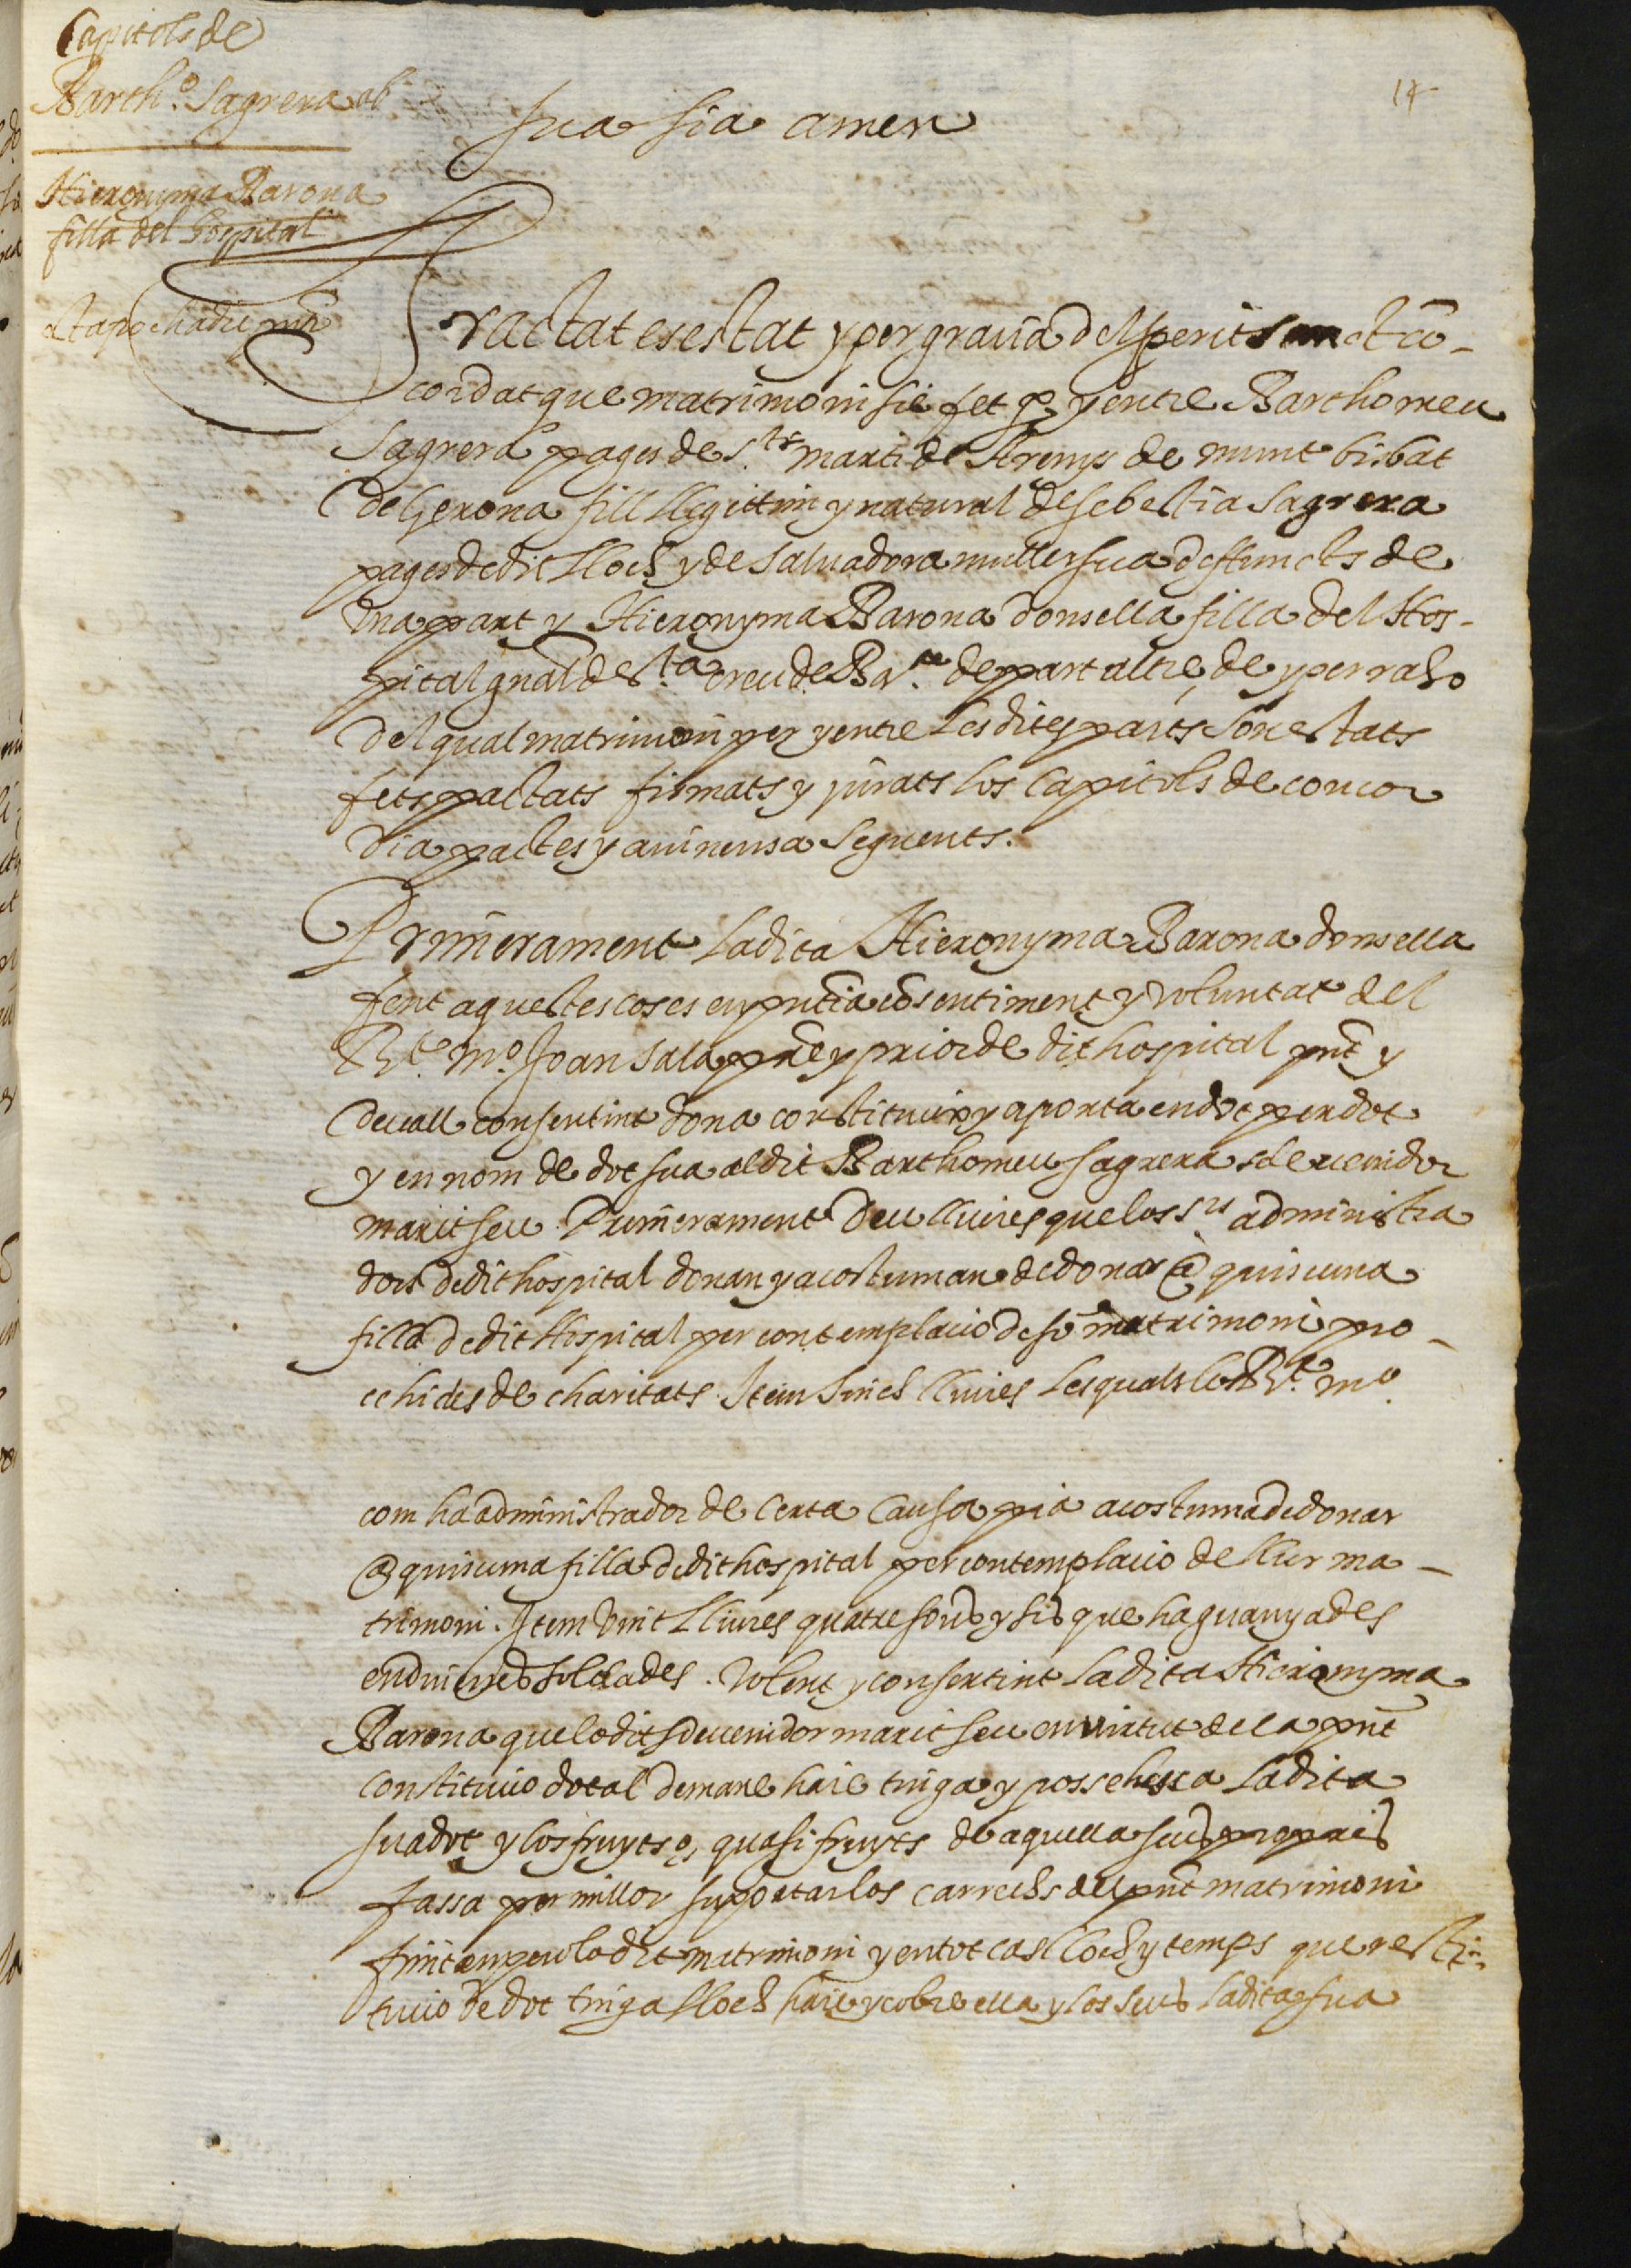 Capitols de
Barth.º Sagrera ab
Hieronyma Barona
filla del Hospital
14
sua sia amen
Tractat es estat y per gracia del sperit sanct cō-
cordat que matrimoni sie fet p. y entre Barthomeu
Sagrera pages de S.t marti de Arenys de munt bisbat
de Gerona fill llegittim y natural de Sebestia Sagrera
pages de dit lloch y de Salvadora muller sua deffuncts de
una part y Hieronyma Barona donsella filla del Hos-
pital gnāl de S.ta creu de Bar.na de part altre, de y per raho
del qual matrimoni per y entre les dites parts son estats
fets pactats firmats y jurats los Capitols de concor
dia pactes y avinensa seguents.
Primerament la dita Hieronyma Barona donsella
fent aquestes coses en pntia cōsentiment y voluntat del
R.t m.º Joan Sala pre y prior de dit hospital pnt y
devall consentint dona constitueix y aporta en dot per dot
y en nom de dot sua al dit Barthomeu Sagrera sdevenidor
marit seu. Primerament deu lliures que los s.rs administra
dors de dit hospital donan y acostuman de donar @ quiscuna
filla de dit Hospital per contemplacio de só matrimoni pro-
cehides de charitats. Item Sinch lliures les quals lo R.t m.º
com ha administrador de certa causa pia acostuma de donar
@ quiscuna filla de dit hospital per contemplacio de llur ma-
trimoni. Item vint Lliures quatre sous y sis que ha guanyades
en diverses soldades. Volent y consentint la dita Hieronyma
Barona que lo dit sdevenidor marit seu en virtut de la pnt
constitucio dotal demane haie tinga y possehesca la dita
sua dot y los fruyts o, quasi fruyts de aquella seus propris
fassa per millor suportar los carrechs del pnt matrimoni
finit empero lo dit matrimoni y en tot cas lloch y temps que resti-
tucio de dot tinga lloch haie y cobre ella y los seus la dita sua